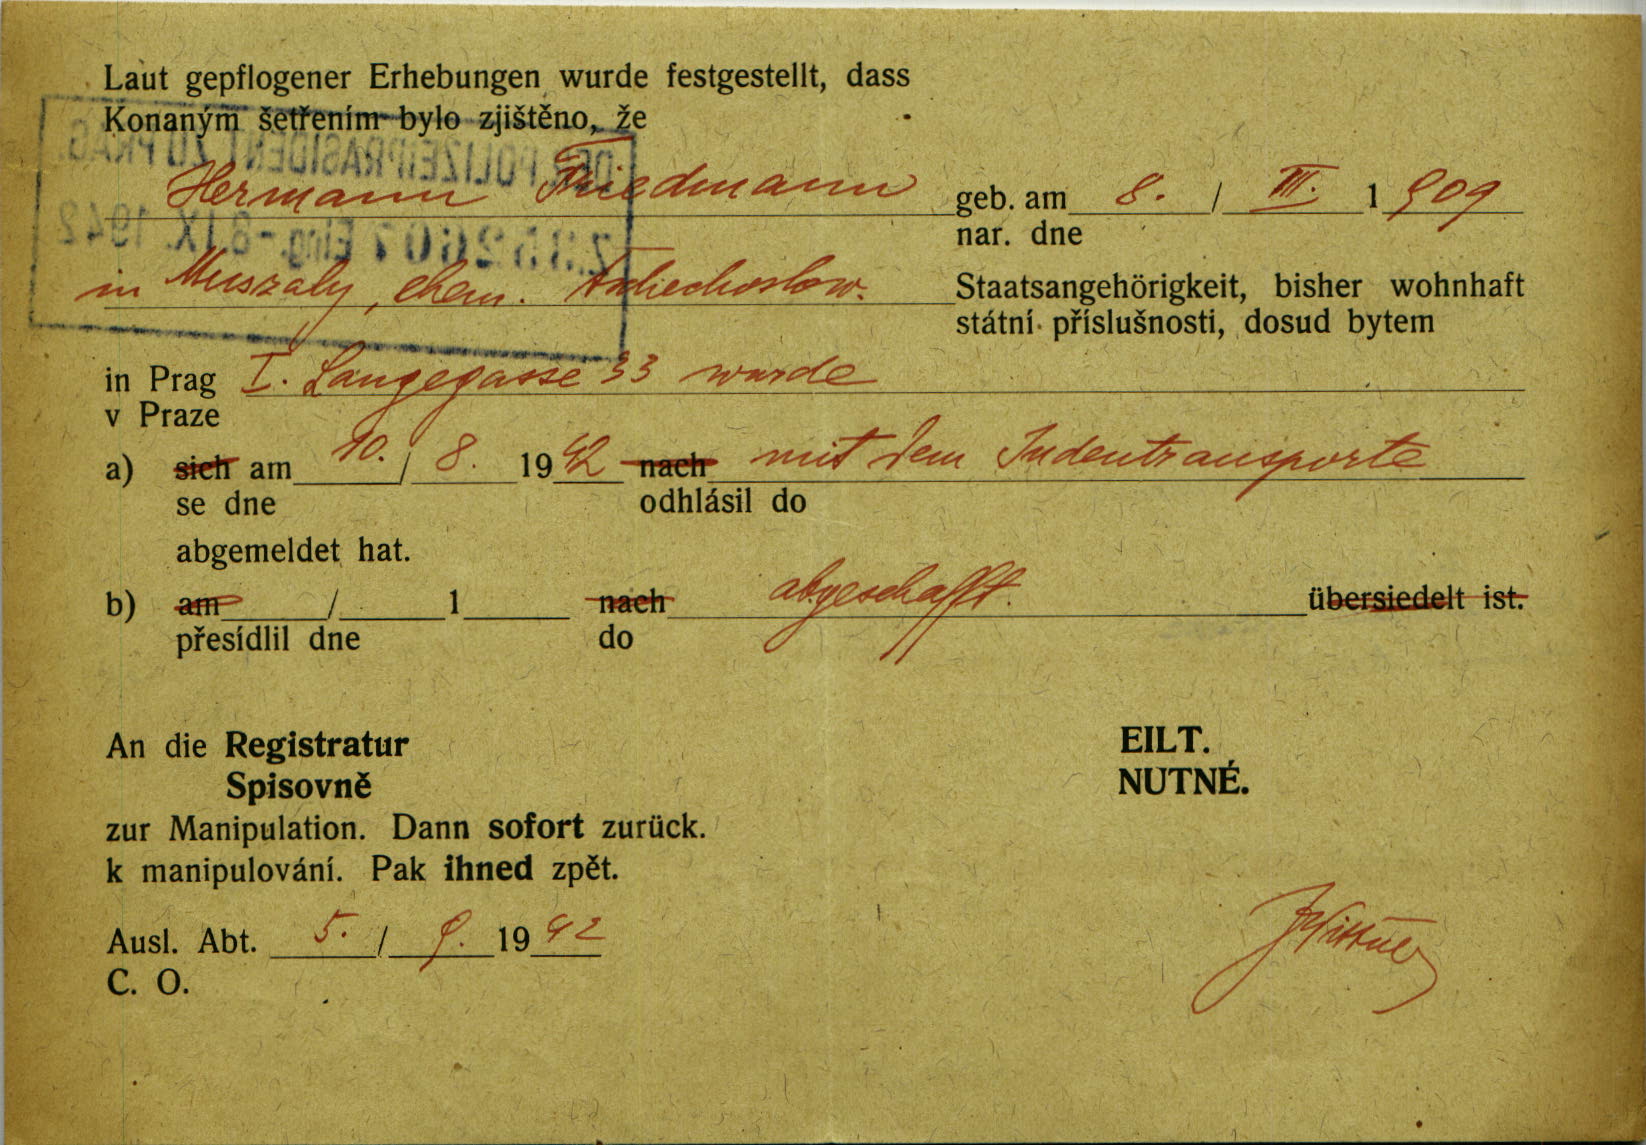 Laut gepflogener Erhebungen wurde festgestellt, dass
Konaným šetřením bylo zjištěno, že
DER POLIZEIPRÄSIDENT ZU PRAG.
Eing. -8. IX. 1942
Hermann Friedmann geb. am 8. / III. 1909
nar. dne
in Muszaly, ehem. tschechoslow. Staatsangehörigkeit, bisher wohnhaft
státní příslušnosti, dosud bytem
in Prag I. Langegasse 33 wurde
v Praze
a) sich am 10. / 8. 1942 nach mit dem Judentransporte
se dne odhlásil do
abgemeldet hat.
b) am / 1 nach abgeschafft. übersiedelt ist.
přesídlil dne do
An die Registratur EILT.
Spisovně NUTNÉ.
zur Manipulation. Dann sofort zurück.
k manipulování. Pak ihned zpět.
Ausl. Abt. 5. / 9. 1942
C. O.